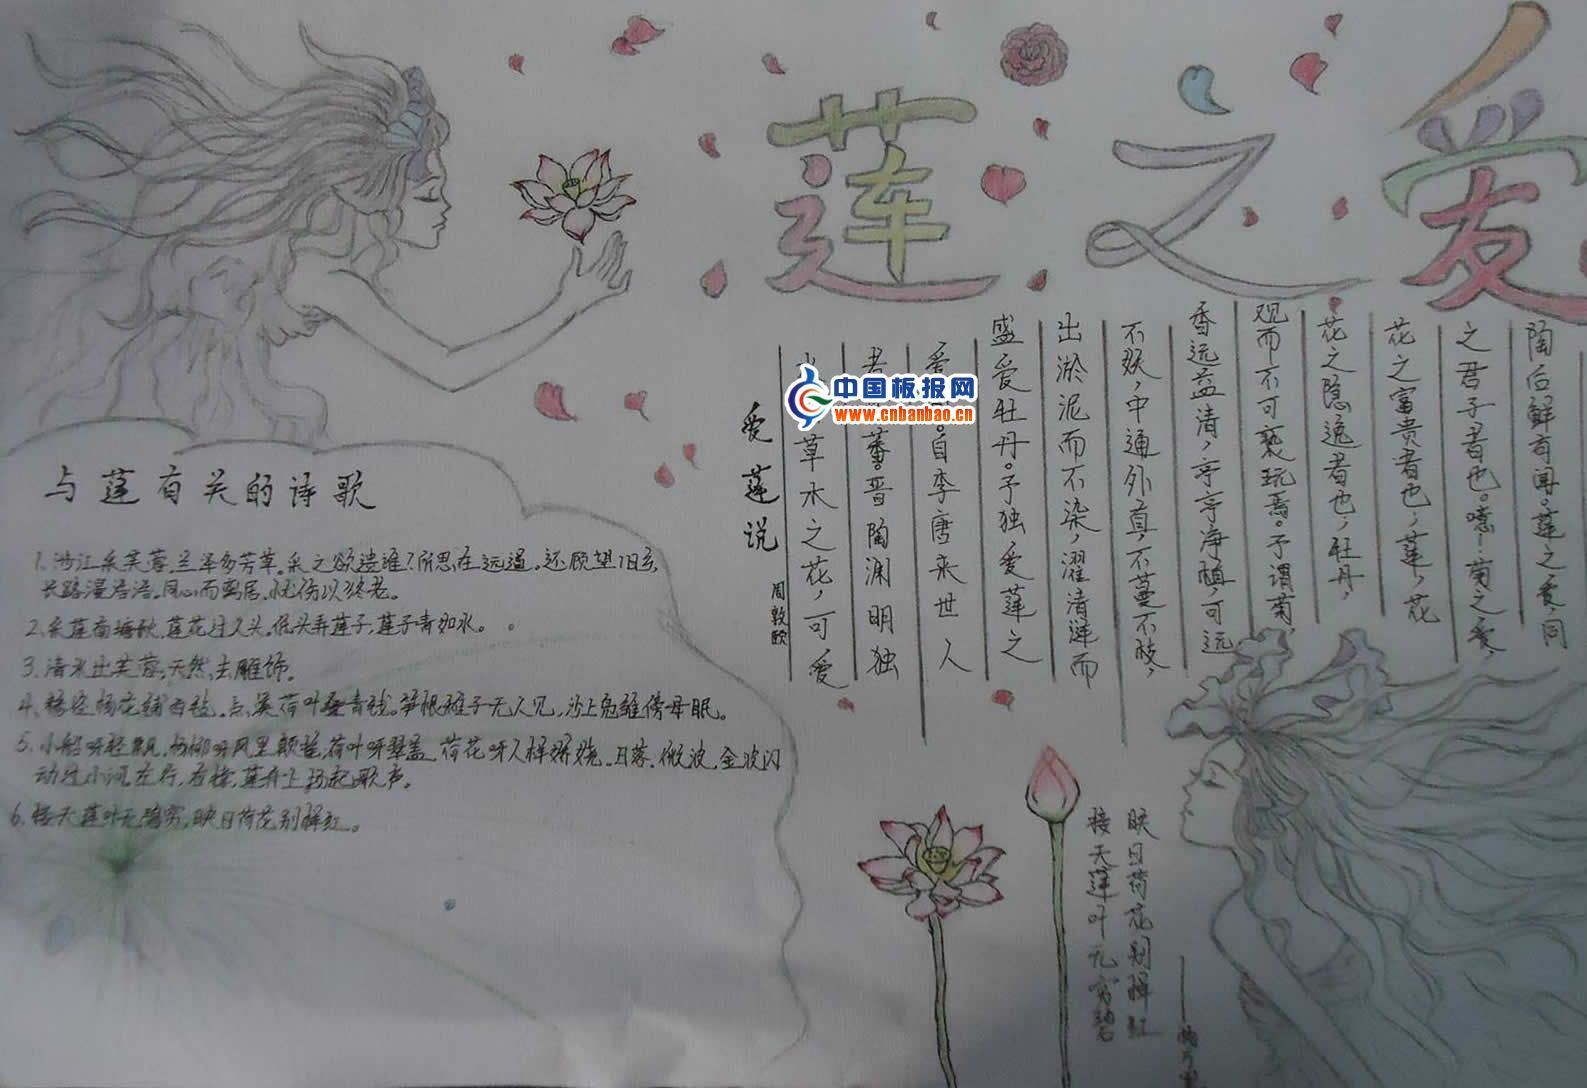 莲之爱
爱莲说
周敦颐
草水之花，可爱
蕃。晋陶渊明独
爱。自李唐来世人
盛爱牡丹。予独爱莲之
出淤泥而不染，濯清涟而
不妖，中通外直，不蔓不枝，
香远益清，亭亭净植，可远
观而不可亵玩焉。予谓菊，
花之隐逸者也，牡丹，
花之富贵者也，莲，花
之君子者也。噫！菊之爱，
陶后鲜有闻。莲之爱同
中国板报网
www.cnbanbao.cn
与莲有关的诗歌
1、涉江采芙蓉，兰泽多芳草。采之欲遗谁？所思在远道。还顾望旧乡，
长路漫浩浩。同心而离居，忧伤以终老。
2、采莲南塘秋，莲花过人头，低头弄莲子，莲子青如水。
3、清水出芙蓉，天然去雕饰。
4、糁径杨花铺白毡。点溪荷叶叠青钱。笋根稚子无人见，沙上凫雏傍母眠。
5、小船呀轻飘，杨柳呀风里颠摇，荷叶呀翠盖，荷花呀人样娇娆。日落，微波，金波闪
动过小河，左行，右撑，莲舟上扬起歌声。
6、接天莲叶无穷，映日荷花别样红。
映日荷花别样红
接天莲叶无穷碧